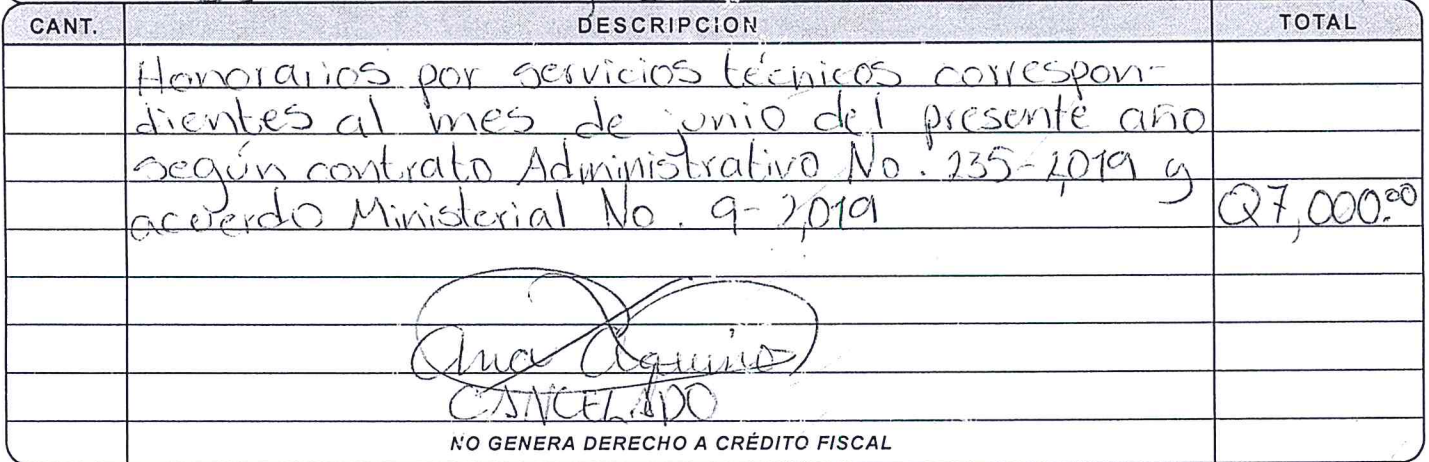 CANT. DESCRIPCION TOTAL
Honorarios por servicios técnicos correspon-
dientes al mes de junio del presente año
según contrato Administrativo No. 235-2,019 y
acuerdo Ministerial No. 9-2,019 Q7,000.00
Ana Aquino
CANCELADO
NO GENERA DERECHO A CRÉDITO FISCAL